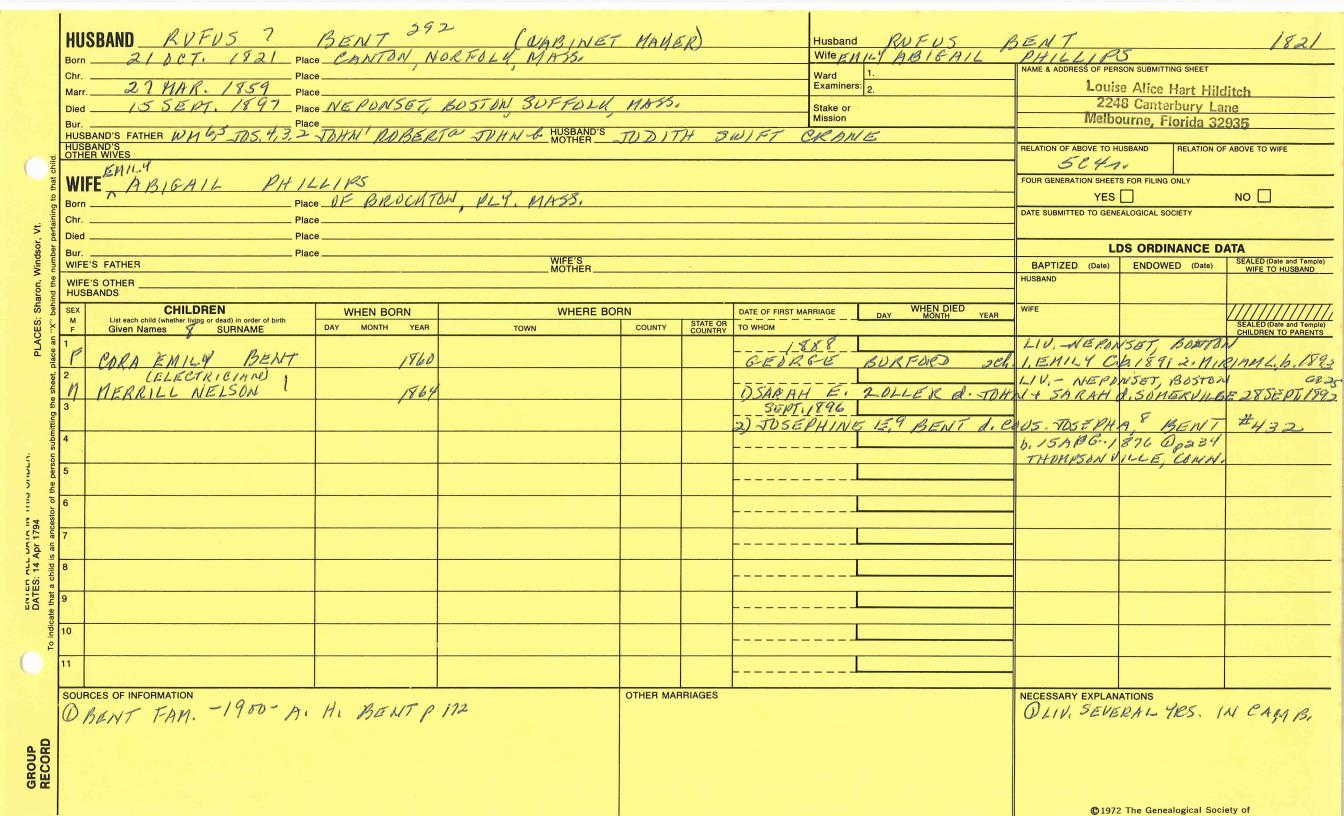 HUSBAND RUFUS 7 BENT 292 (CABINET MAKER)
Born 21 OCT. 1821 Place CANTON, NORFOLK, MASS.
Chr. Place
Marr. 27 MAR. 1859 Place
Died 15 SEPT. 1897 Place NEPONSET, BOSTON SUFFOLK, MASS.
Bur. Place
HUSBAND'S FATHER WM 6,5 JOS. 4,3,2 JOHN 1 ROBERT a JOHN b HUSBAND'S MOTHER JUDITH SWIFT CRANE
HUSBAND'S OTHER WIVES
Husband RUFUS BENT 1821
Wife EMILY ABIGAIL PHILLIPS
Ward Examiners: 1.
2.
Stake or Mission
NAME & ADDRESS OF PERSON SUBMITTING SHEET
Louise Alice Hart Hilditch
2248 Canterbury Lane
Melbourne, Florida 32935
RELATION OF ABOVE TO HUSBAND RELATION OF ABOVE TO WIFE
5C4r.
FOUR GENERATION SHEETS FOR FILING ONLY
YES NO
DATE SUBMITTED TO GENEALOGICAL SOCIETY
EMILY
WIFE ^ ABIGAIL PHILLIPS
Born Place OF BROCKTON, PLY. MASS.
Chr. Place
Died Place
Bur. Place
WIFE'S FATHER WIFE'S MOTHER
WIFE'S OTHER HUSBANDS
LDS ORDINANCE DATA
BAPTIZED (Date) ENDOWED (Date) SEALED (Date and Temple) WIFE TO HUSBAND
HUSBAND
WIFE
SEALED (Date and Temple) CHILDREN TO PARENTS
SEX M F CHILDREN WHEN BORN WHERE BORN DATE OF FIRST MARRIAGE WHEN DIED
List each child (whether living or dead) in order of birth
Given Names 8 SURNAME DAY MONTH YEAR TOWN COUNTY STATE OR COUNTRY TO WHOM DAY MONTH YEAR
1 1888 LIV. NEPONSET, BOSTON
F CORA EMILY BENT 1860 GEORGE BURFORD 2ch. 1. EMILY C. b. 1891 2. MIRIAM L. b. 1893
2 (ELECTRICIAN) LIV. - NEPONSET, BOSTON
M MERRILL NELSON 1864 1) SARAH E. ZOLLER d. JOHN + SARAH d. SOMERVILLE 28 SEPT 1892
3 SEPT. 1896
2) JOSEPHINE E. 9 BENT d. COUS. JOSEPH A. 8 BENT #432
4 b. 15 1876 p234
THOMPSONVILLE, CONN.
5
6
7
8
9
10
11
SOURCES OF INFORMATION
① BENT FAM. -1900- A. H. BENT p 172
OTHER MARRIAGES
NECESSARY EXPLANATIONS
① LIV. SEVERAL YRS. IN CAMB.
©1972 The Genealogical Society of
PLACES: Sharon, Windsor, Vt.
ENTER ALL DATA IN THIS ORDER:
DATES: 14 Apr 1794
To indicate that a child is an ancestor of the person submitting the sheet, place an "X" behind the number pertaining to that child.
GROUP RECORD